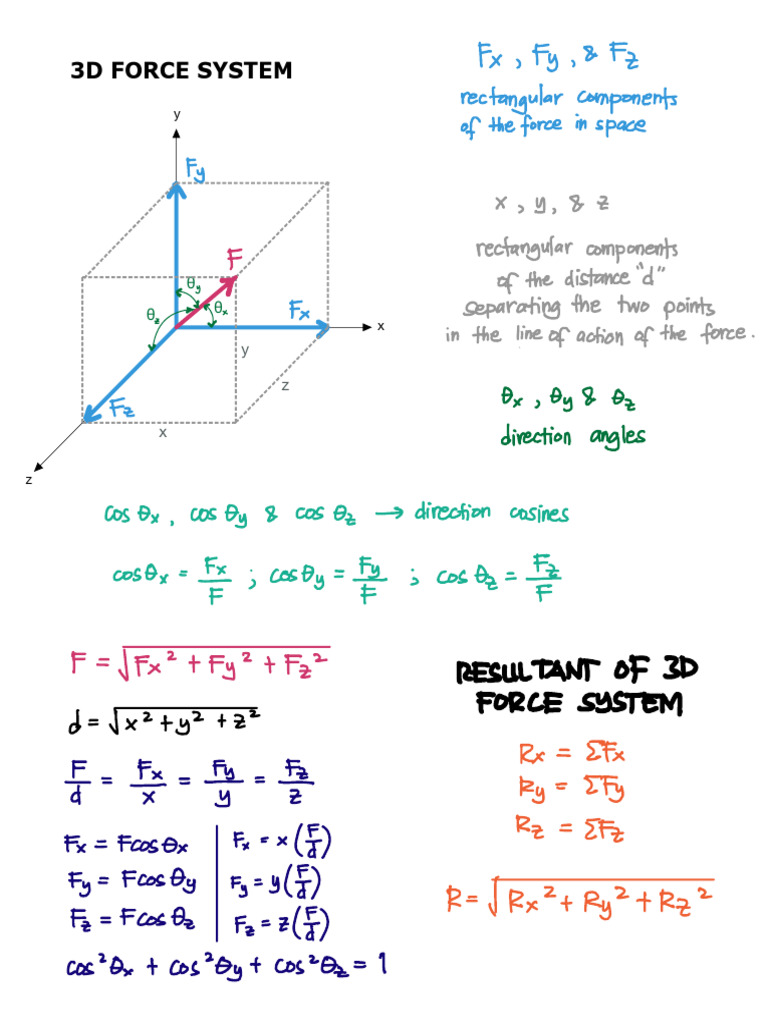 3D FORCE SYSTEM
y
Fy
F
θy
θz
θx
Fx
x
y
z
Fz
x
z
Fx , Fy , & Fz
rectangular components
of the force in space
x , y, & z
rectangular components
of the distance "d"
separating the two points
in the line of action of the force.
θx , θy & θz
direction angles
cos θx , cos θy & cos θz → direction cosines
cosθx = Fx/F ; cosθy = Fy/F ; cosθz = Fz/F
F = √(Fx² + Fy² + Fz²)
d = √(x² + y² + z²)
F/d = Fx/x = Fy/y = Fz/z
Fx = Fcosθx | Fx = x(F/d)
Fy = Fcosθy | Fy = y(F/d)
Fz = Fcosθz | Fz = z(F/d)
cos²θx + cos²θy + cos²θz = 1
RESULTANT OF 3D
FORCE SYSTEM
Rx = ΣFx
Ry = ΣFy
Rz = ΣFz
R = √(Rx² + Ry² + Rz²)